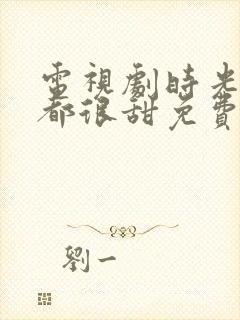 電視劇時光
都很甜免費
劉一